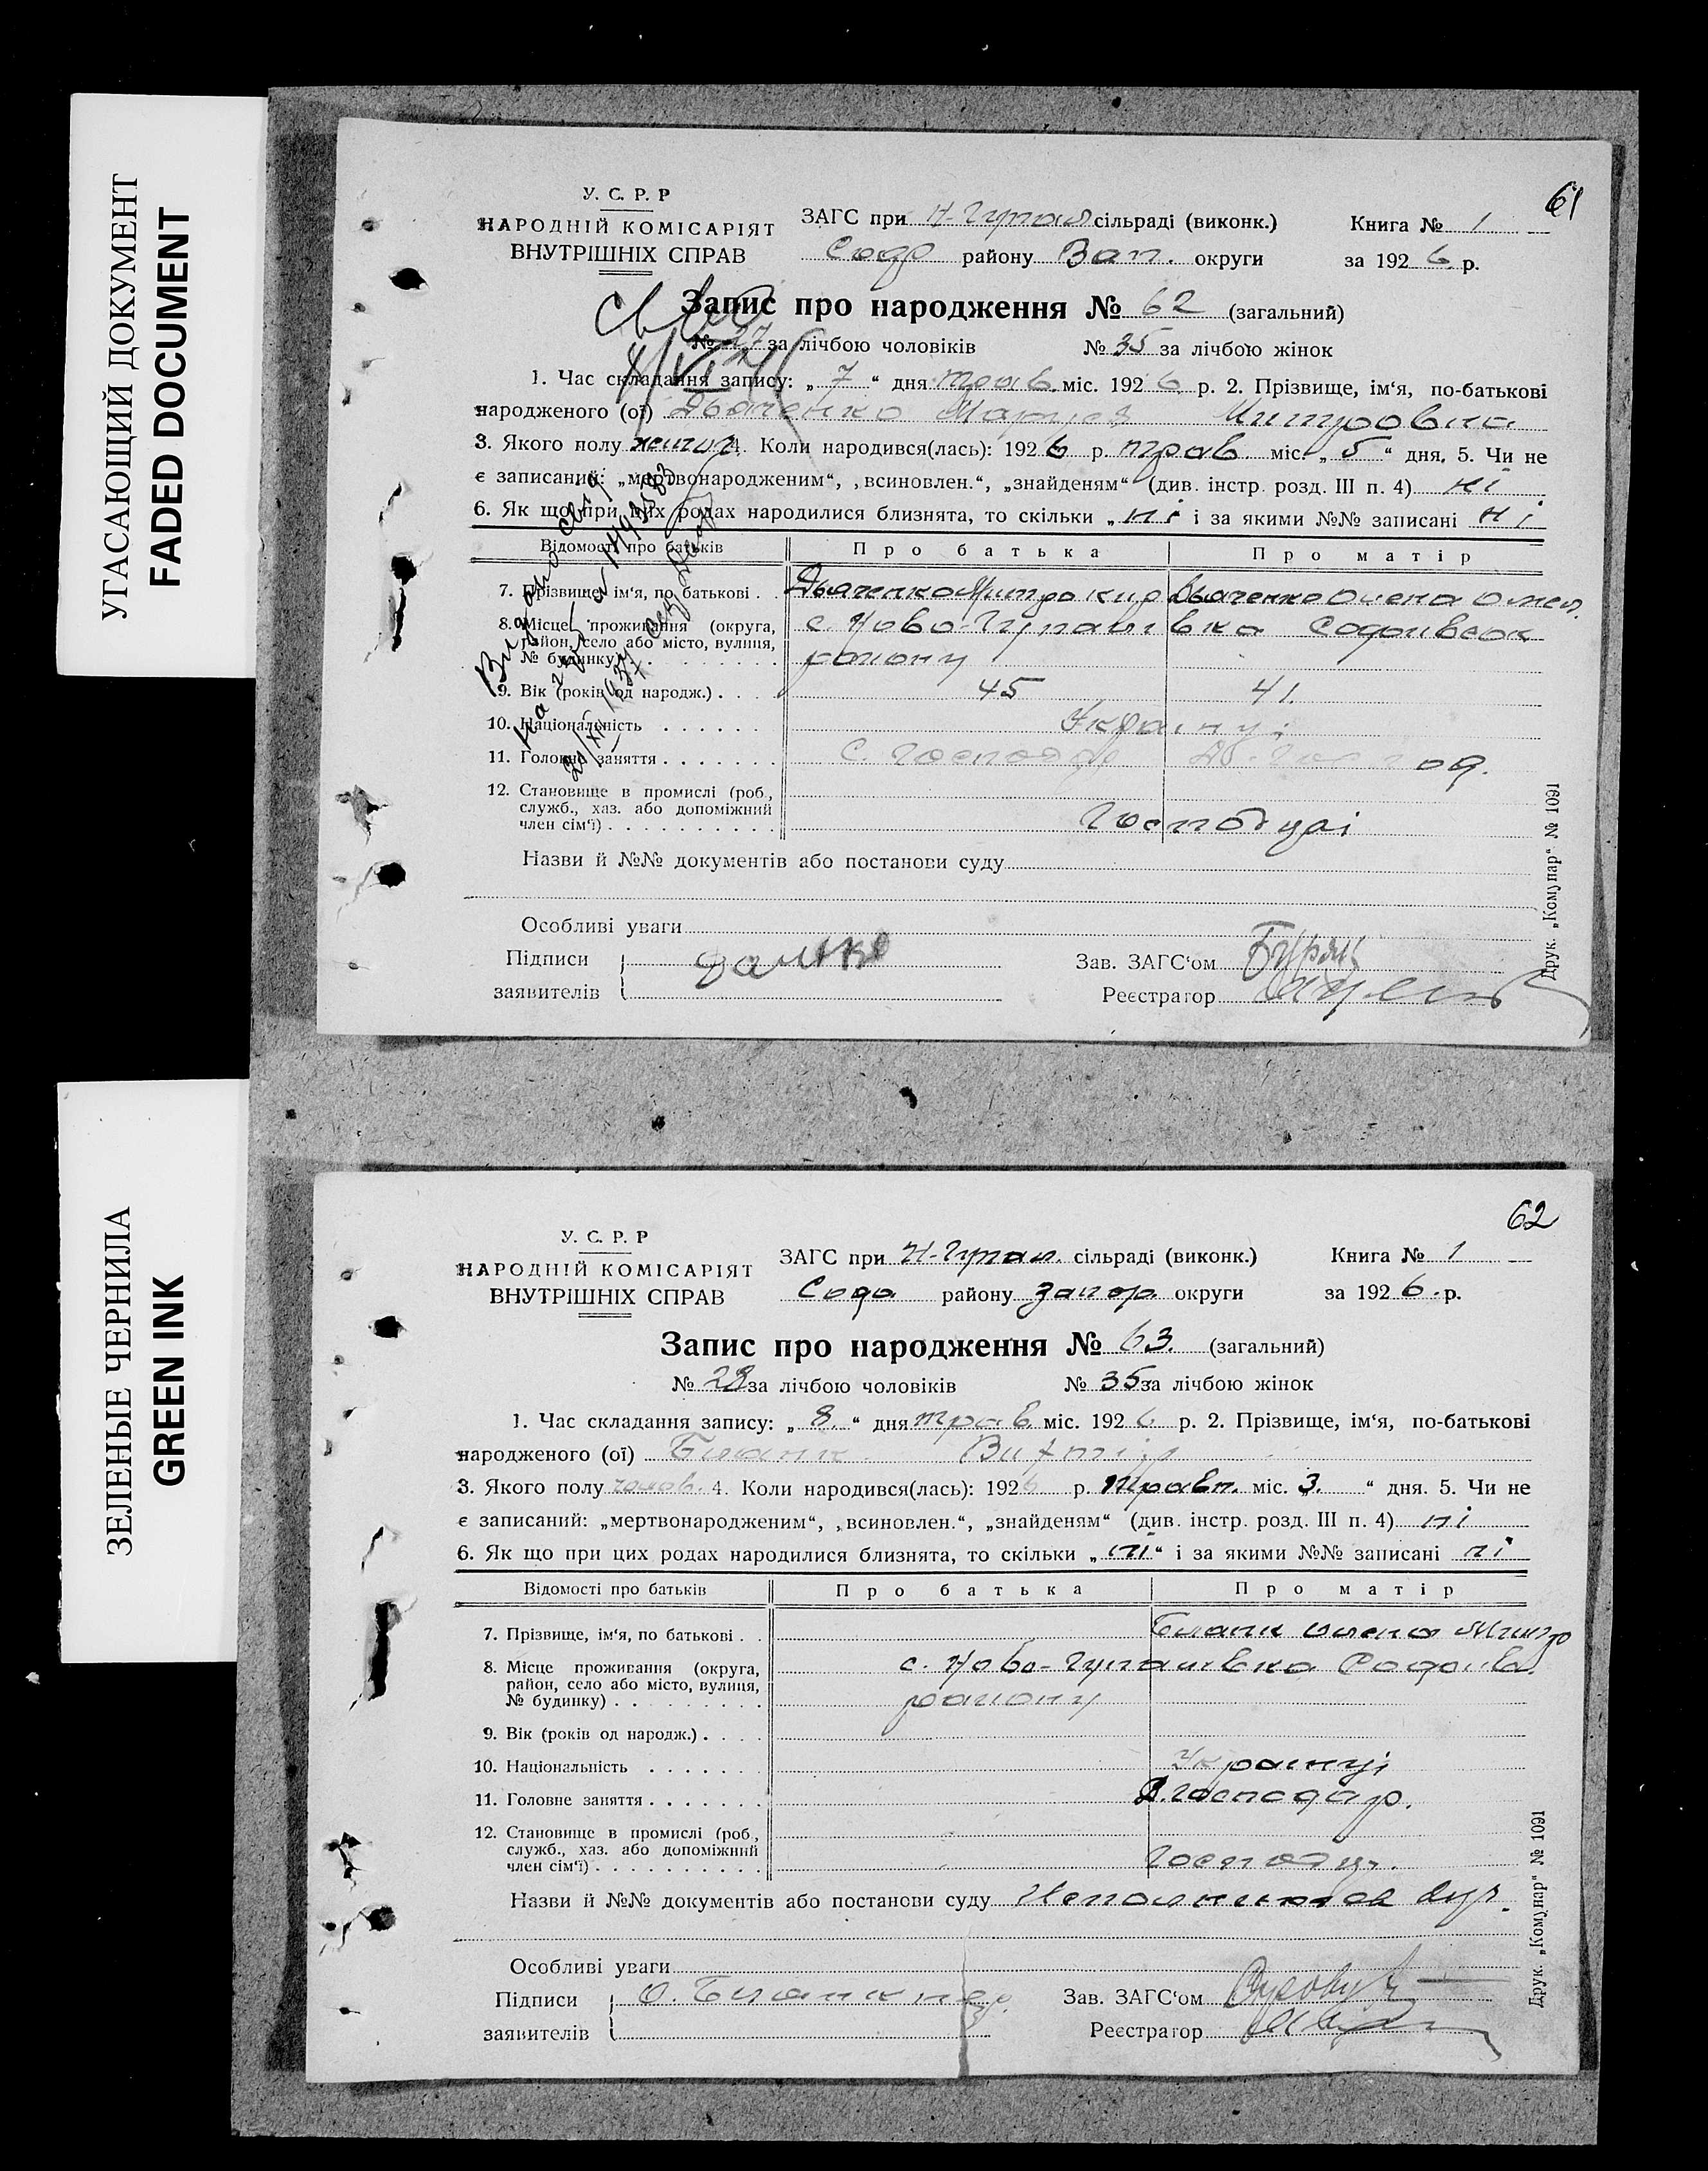 УГАСАЮЩИЙ ДОКУМЕНТ
FADED DOCUMENT
61
У. С. Р. Р
НАРОДНІЙ КОМІСАРІЯТ
ВНУТРІШНІХ СПРАВ
ЗАГС при Н-Гупал сільраді (виконк.)
Книга № 1
Соф району Зап. округи
за 1926 р.
Запис про народження № 62 (загальний)
№ 27 за лічбою чоловіків № 35 за лічбою жінок
1. Час складання запису: „ 7 “ дня трав. міс. 1926 р. 2. Прізвище, ім‘я, по-батькові
народженого (ої) Дьяченко Митровна
3. Якого полу 4. Коли народився(лась): 1926 р. трав. міс. „ 5 “ дня. 5. Чи не
є записаний: „мертвонародженим“, „всиновлен.“, „знайденям“ (див. інстр. розд. III п. 4) ні
6. Як що при цих родах народилися близнята, то скільки „ ні і за якими №№ записані ні
Відомості про батьків Про батька Про матір
7. Прізвище, ім‘я, по батькові . . Дьяченко Митро Кир Дьяченко Олена Омел.
8. Місце проживання (округа, район, село або місто, вулиця, № будинку) с. Ново-Гупалівка Софоивськ
району
9. Вік (років од народж.) . . . 45 41.
10. Національність . . . . . . Українці
11. Головне заняття . . . . . . . С. господар
12. Становище в промислі (роб., служб., хаз. або допоміжний член сім‘ї) . . . . . . . . . . Господарі
Назви й №№ документів або постанови суду
Особливі уваги
Підписи
заявителів
Зав. ЗАГС‘ом
Реєстратор
Друк. „Комунар“ № 1091
ЗЕЛЕНЫЕ ЧЕРНИЛА
GREEN INK
62
У. С. Р. Р
НАРОДНІЙ КОМІСАРІЯТ
ВНУТРІШНІХ СПРАВ
ЗАГС при Н-Гупал. сільраді (виконк.)
Книга № 1
Софо району Запор. округи
за 1926. р.
Запис про народження № 63. (загальний)
№ 28 за лічбою чоловіків № 35 за лічбою жінок
1. Час складання запису: „ 8. “ дня трав. міс. 1926 р. 2. Прізвище, ім‘я, по-батькові
народженого (ої) Виктір
3. Якого полу чолов. 4. Коли народився(лась): 1926 р. травп. міс. „ 3. “ дня. 5. Чи не
є записаний: „мертвонародженим“, „всиновлен.“, „знайденям“ (див. інстр. розд. III п. 4) ні
6. Як що при цих родах народилися близнята, то скільки „ ні “ і за якими №№ записані ні
Відомості про батьків Про батька Про матір
7. Прізвище, ім‘я, по батькові . . Олена Митр
8. Місце проживання (округа, район, село або місто, вулиця, № будинку) . . . . . . . . с. Ново-Гупалівка Софоив.
району
9. Вік (років од народж.) . . . .
10. Національність . . . . . . . Українці
11. Головне заняття . . . . . . . Д. господар.
12. Становище в промислі (роб., служб., хаз. або допоміжний член сім‘ї) . . . . . . . . . .
Назви й №№ документів або постанови суду
Особливі уваги
Підписи
заявителів
Зав. ЗАГС‘ом
Реєстратор
Друк. „Комунар“ № 1091